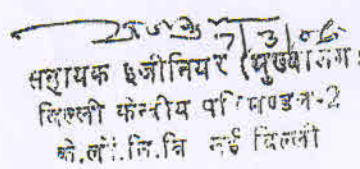 7/3/06
सहायक इंजीनियर (मुख्यालय)
दिल्ली केन्द्रीय परिमण्डल-2
के.लो.नि.वि नई दिल्ली